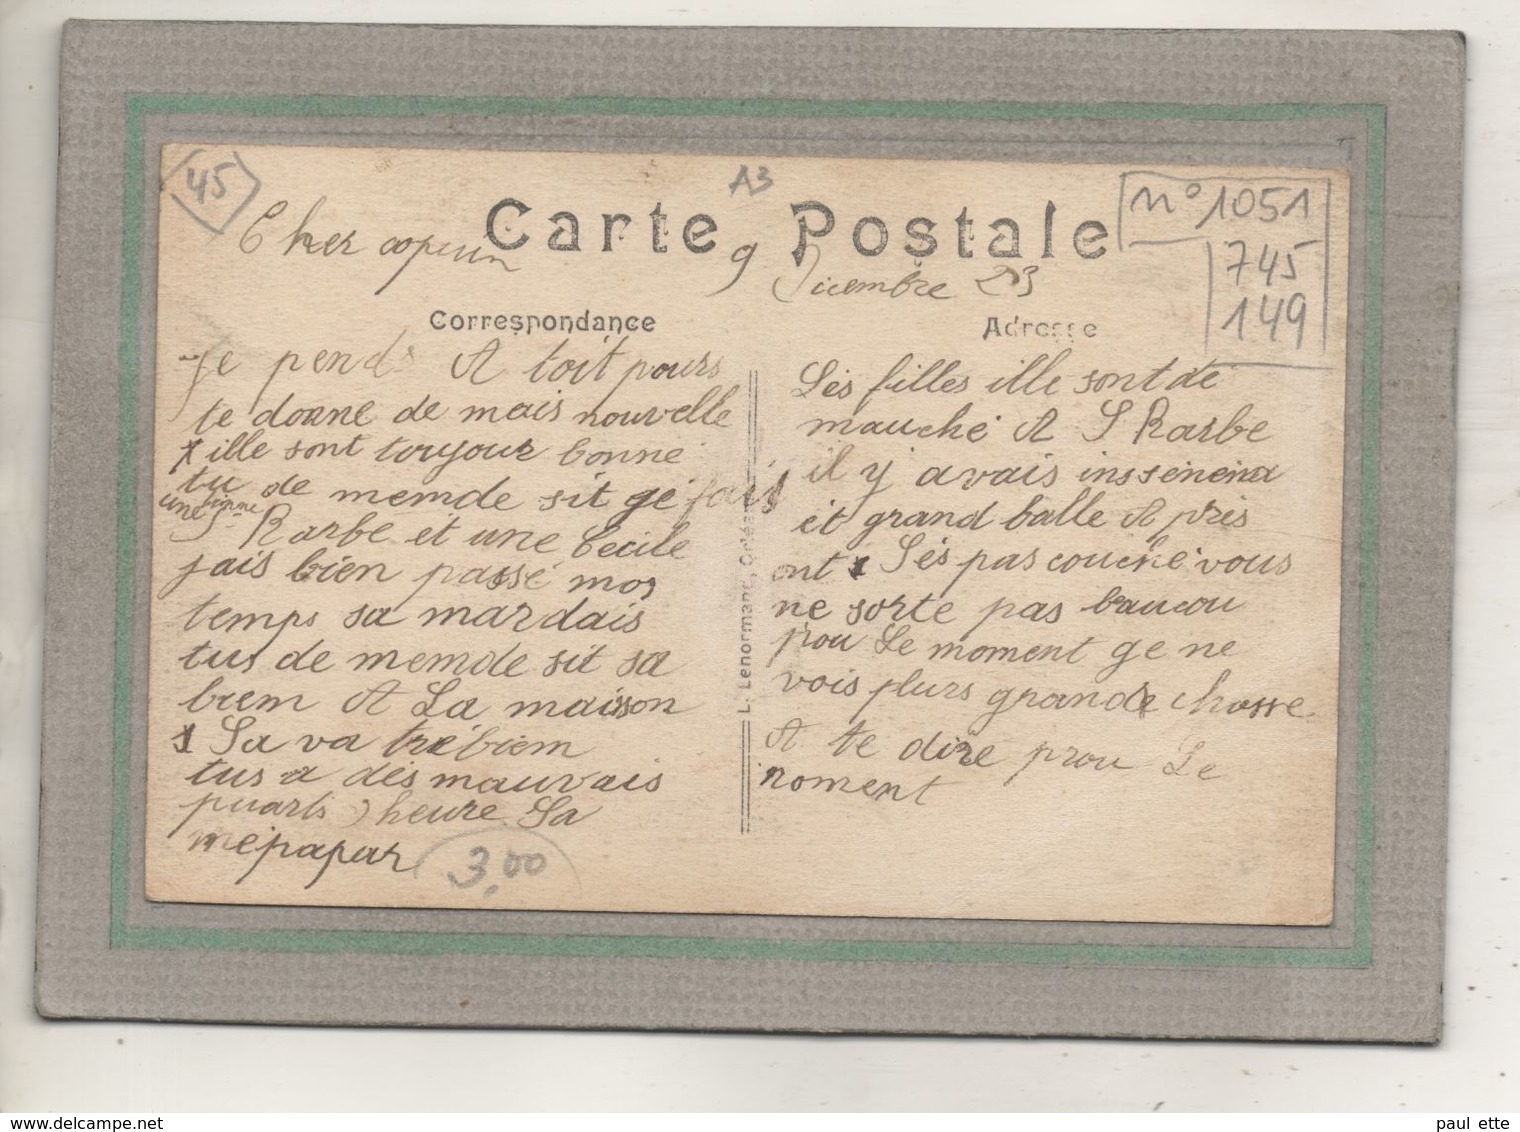 45
A3
Carte Postale
n° 1051
745
149
Cher
9 Dicembre 23
Correspondance
Adresse
Je pends A toit pours
te donne de mais nouvelle
ille sont toujour bonne
tu de memde sit gé fait
une bonne
S Barbe et une Cecile
jais bien passé mos
temps sa mardais
tus de memde sit sa
biem A La maison
Sa va tré biem
tus a des mauvais
puarts heure Sa
Les filles ille sont de
mauché A S Barbe
il y avais
et grand balle A pres
ont Ses pas couché vous
ne sorte pas baucou
prou Le moment ge ne
vois plurs grande chosse
A te dire prou Le
moment
L. Lenormand, Orléans
3,00
paul ette
www.delcampe.net